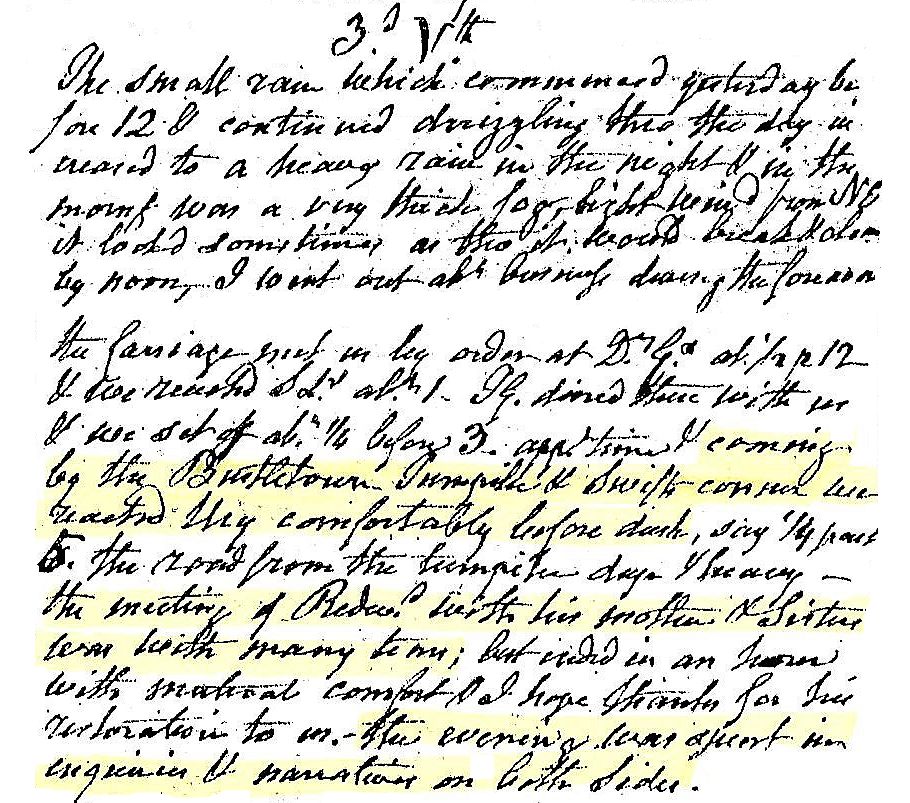 3d 5th
The small rain which commenced yesterday be
fore 12 & continued drizzling thro the day in
creased to a heavy rain in the night & in the
morng was a very thick fog, light wind from NE
it lookd sometimes as tho it would break & clear
by noon, I went out abt business during the forenoon
the Carriage met us by order at Dr Gs at ½ p 12
& we reached abt 1. TG. dined there with us
& we set off abt ¼ before 3. appt time & coming
by the Bustletown Turnpike & Swifts corner we
reached comfortably before dusk, say ¼ past
5. the road from the turnpike deep & heavy –
the meeting of Redwd with his mother & Sisters
was with many tears; but ended in an hour
with mutual comfort & I hope thanks for his
restoration to us. - the evening was spent in
enquiries & narratives on both Sides.